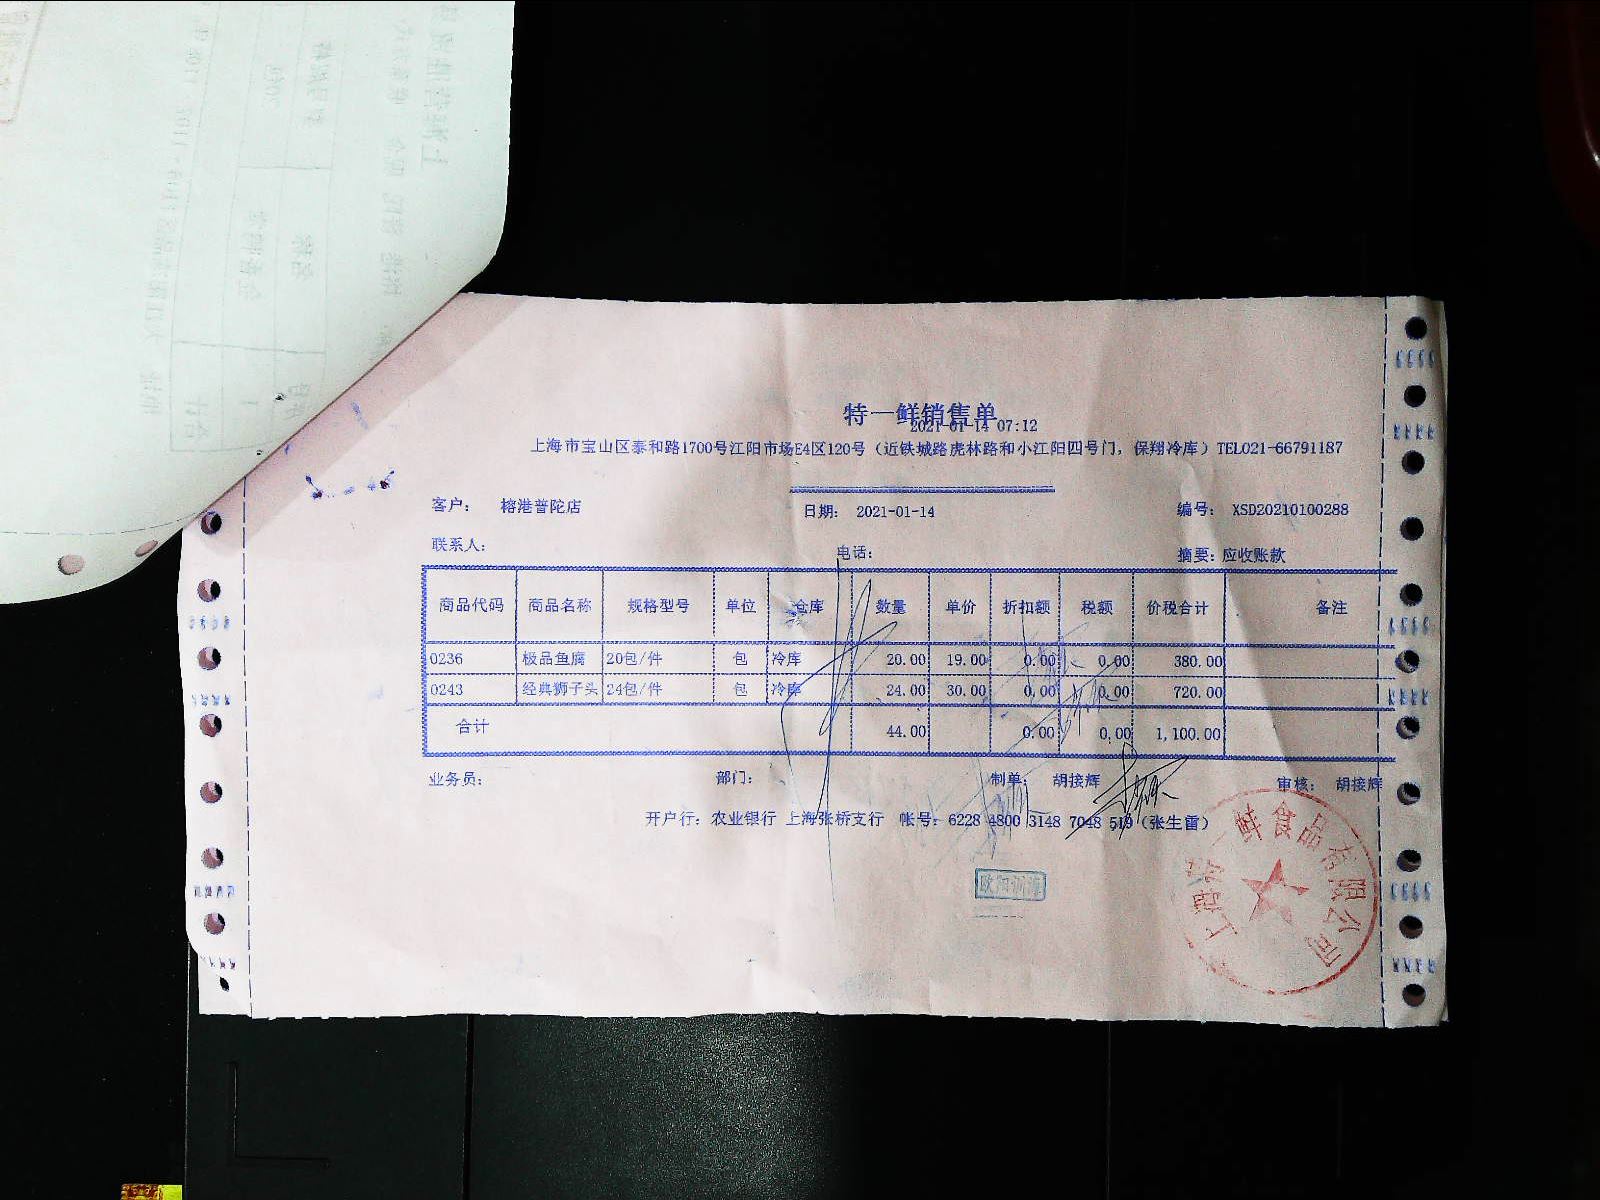 特一鲜销售单
2021-01-14 07:12
上海市宝山区泰和路1700号江阳市场E4区120号（近铁城路虎林路和小江阳四号门，保翔冷库）TEL021-66791187
客户： 榕港普陀店 日期： 2021-01-14 编号： XSD20210100288
联系人： 电话： 摘要：应收账款
商品代码 商品名称 规格型号 单位 仓库 数量 单价 折扣额 税额 价税合计 备注
0236 极品鱼腐 20包/件 包 冷库 20.00 19.00 0.00 0.00 380.00
0243 经典狮子头 24包/件 包 冷库 24.00 30.00 0.00 0.00 720.00
合计 44.00 0.00 0.00 1,100.00
业务员： 部门： 制单： 胡接辉 审核： 胡接辉
开户行：农业银行 上海张桥支行 帐号：6228 4800 3148 7048 519（张生雷）
上海特一鲜食品有限公司